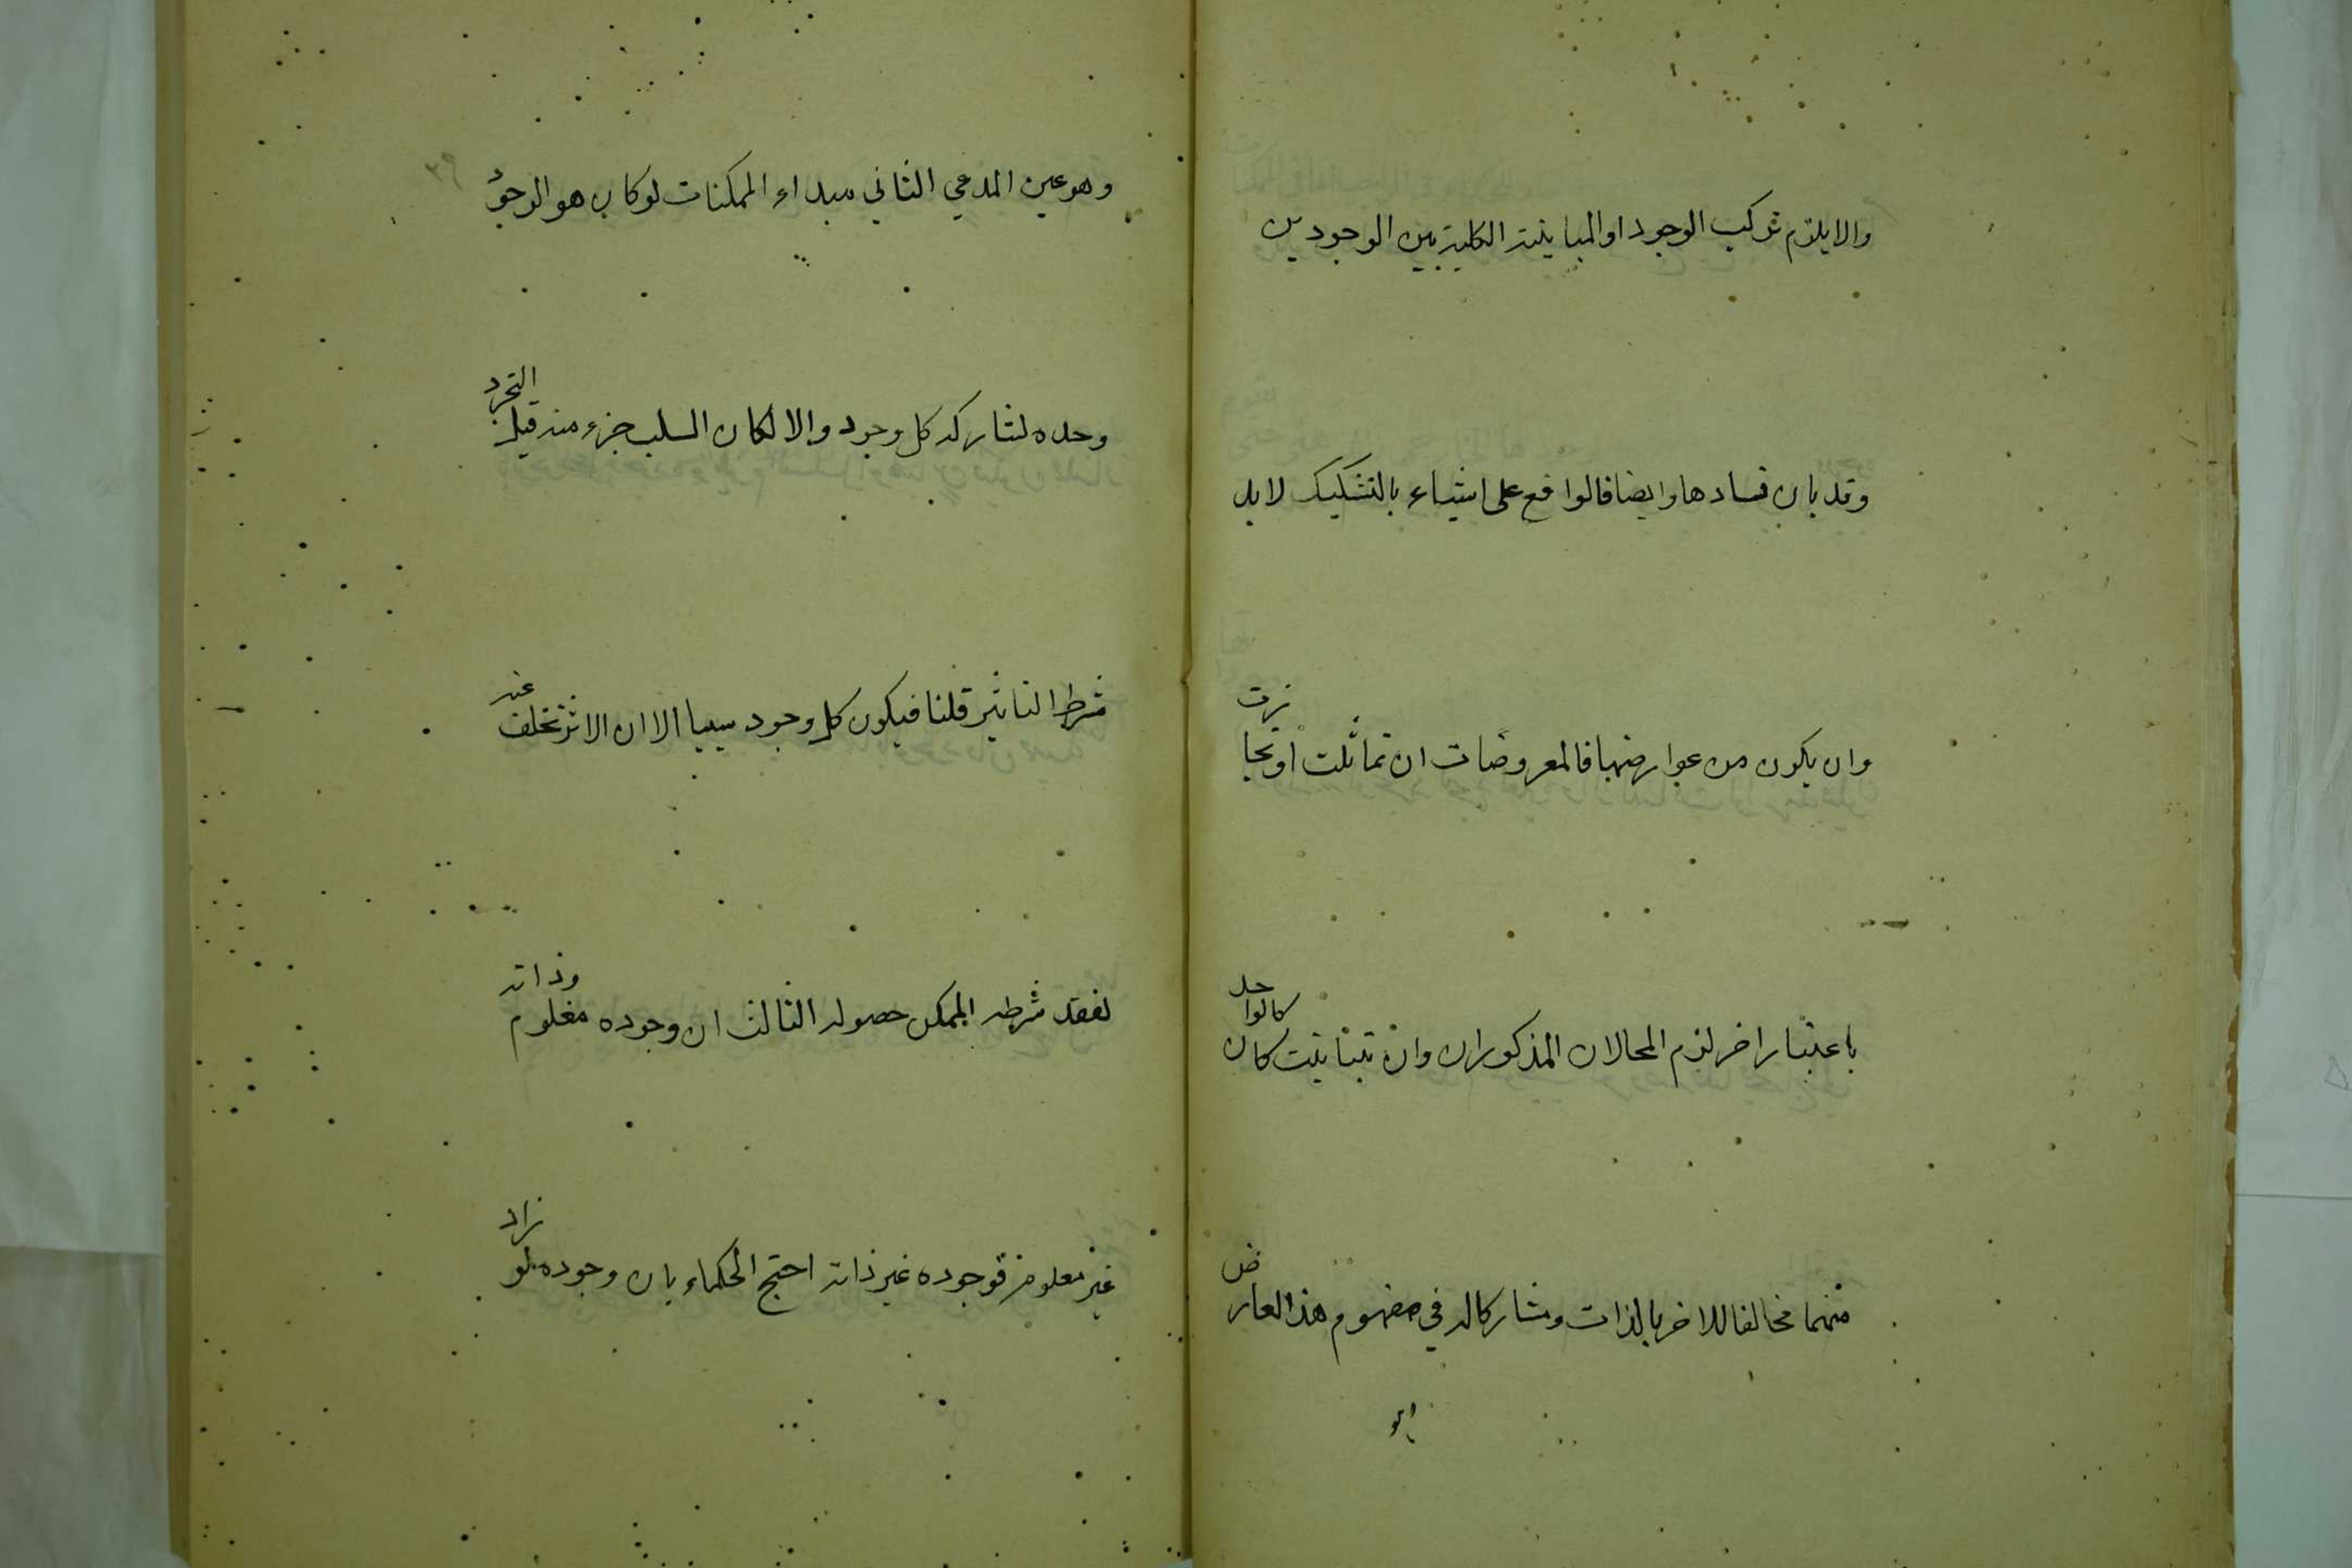 والا يلزم تركب الوجود او المباينة الكلية بين الوجودين
وقد بان فسادها وايضا فالواقع على اشياء بالتشكيك لا بد
وان يكون من عوارضها فالمعروضات ان تماثلت او تجانزت
باعتبار اخر لزم المحالان المذكوران وان تباينت كان كالواحد
منهما مخالفا للاخر بالذات ومشاركا له في مفهوم هذا العارض
وهو عين المدعي الثاني مبداء الممكنات لو كان هو الوجود
وحده لشاركه كل وجود والا لكان السلب جزء منه قيل التجرد
شرط التاثير قلنا فيكون كل وجود سببا الا ان الاثر تخلف عنه
لفقد شرطه الممكن حصوله الثالث ان وجوده معلوم وذاته
غير معلومة فوجوده غير ذاته احتج الحكماء بان وجوده لو زاد